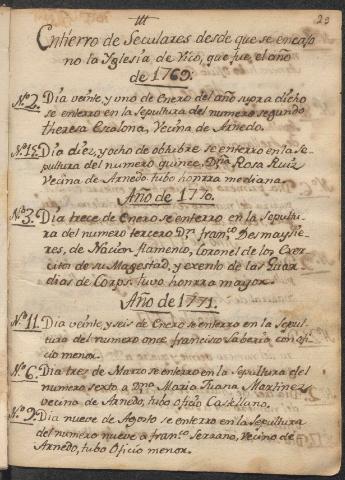 III
29
Entierro de Seculares desde que se encajo
no la Yglesia de Vico, que fue, el año
de 1769:
N.º 2. Dia veinte, y uno de Enero del año supra dicho
se enterro en la Sepultura del numero segundo
theresa Escalona, Vecina de Arnedo.
N.º 15. Dia diez, y ocho de obtubre se enterro en la Se-
pultura del numero quince, Dña Rosa Ruiz
Vecina de Arnedo. tubo honrra mediana.
Año de 1770.
N.º 3. Dia trece de Enero se enterro en la Sepultu-
ra del numero tercero Dn. fran.co Desmaysie-
res, de Nacion flamenco, Coronel de los Exer-
citos de su Magestad, y exento de las Guar
dias de Corps. tuvo honrra mayor.
Año de 1771.
N.º 11. Dia veinte, y seis de Enero se enterro en la Sepul-
tura del numero once francisco Saberio con ofi-
cio menor.
N.º 6. Dia tres de Marzo se enterro en la Sepultura del
numero sexto a Dña Maria Juana Martinez
vecina de Arnedo, tubo oficio Castellano.
N.º 9. Dia nueve de Agosto se enterro en la Sepultura
del numero nueve a fran.co Serrano, Vecino de
Arnedo, tubo Oficio menor.